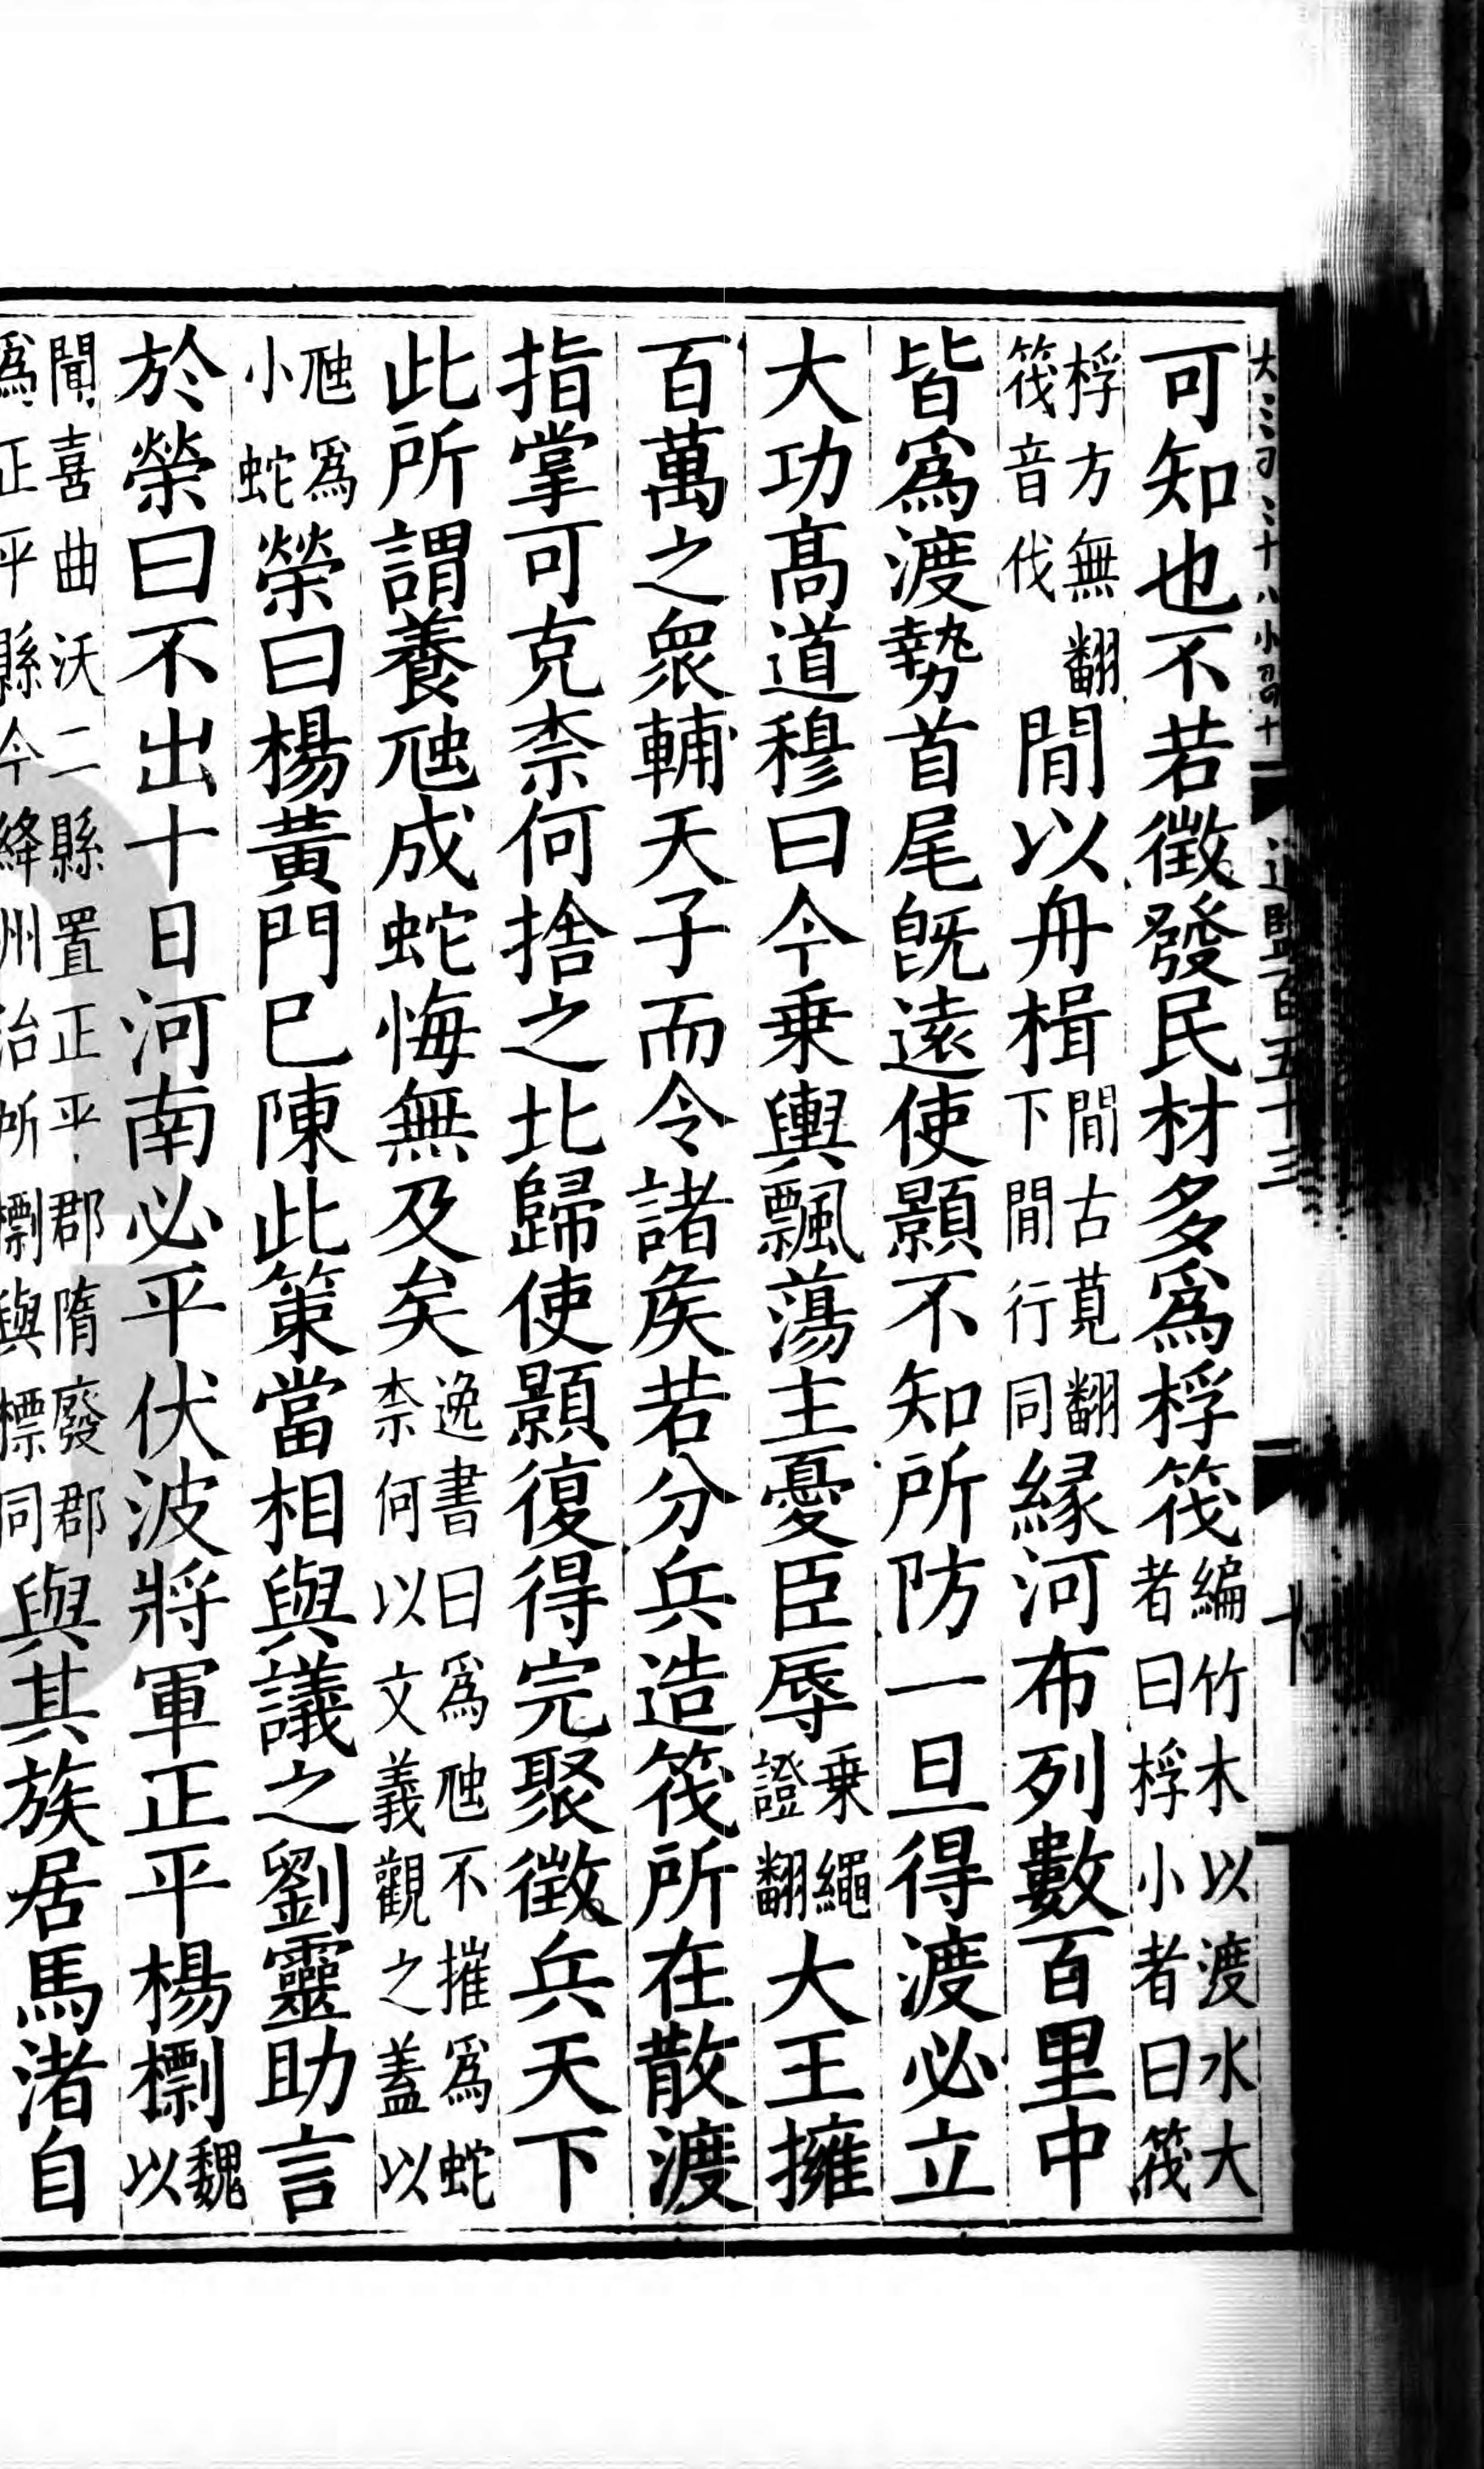 可知也不若徵發民材多爲桴筏編竹木以渡水大者曰桴小者曰筏
桴方無翻筏音伐間以舟楫間古莧翻下間行同縁河布列數百里中
皆爲渡勢首尾旣遠使顥不知所防一旦得渡必立
大功高道穆曰今乗輿飄蕩主憂臣辱乗繩證翻大王擁
百萬之衆輔天子而令諸矦若分兵造筏所在散渡
指掌可克柰何捨之北歸使顥復得完聚徵兵天下
此所謂養虺成蛇悔無及矣逸書曰爲虺不摧爲蛇柰何以文義觀之蓋以
虺爲小蛇榮曰楊黃門已陳此策當相與議之劉靈助言
於榮曰不出十日河南必平伏波將軍正平楊㯹魏以
聞喜曲沃二縣置正平郡隋廢郡爲正平縣今絳州治所㯹與標同與其族居馬渚自